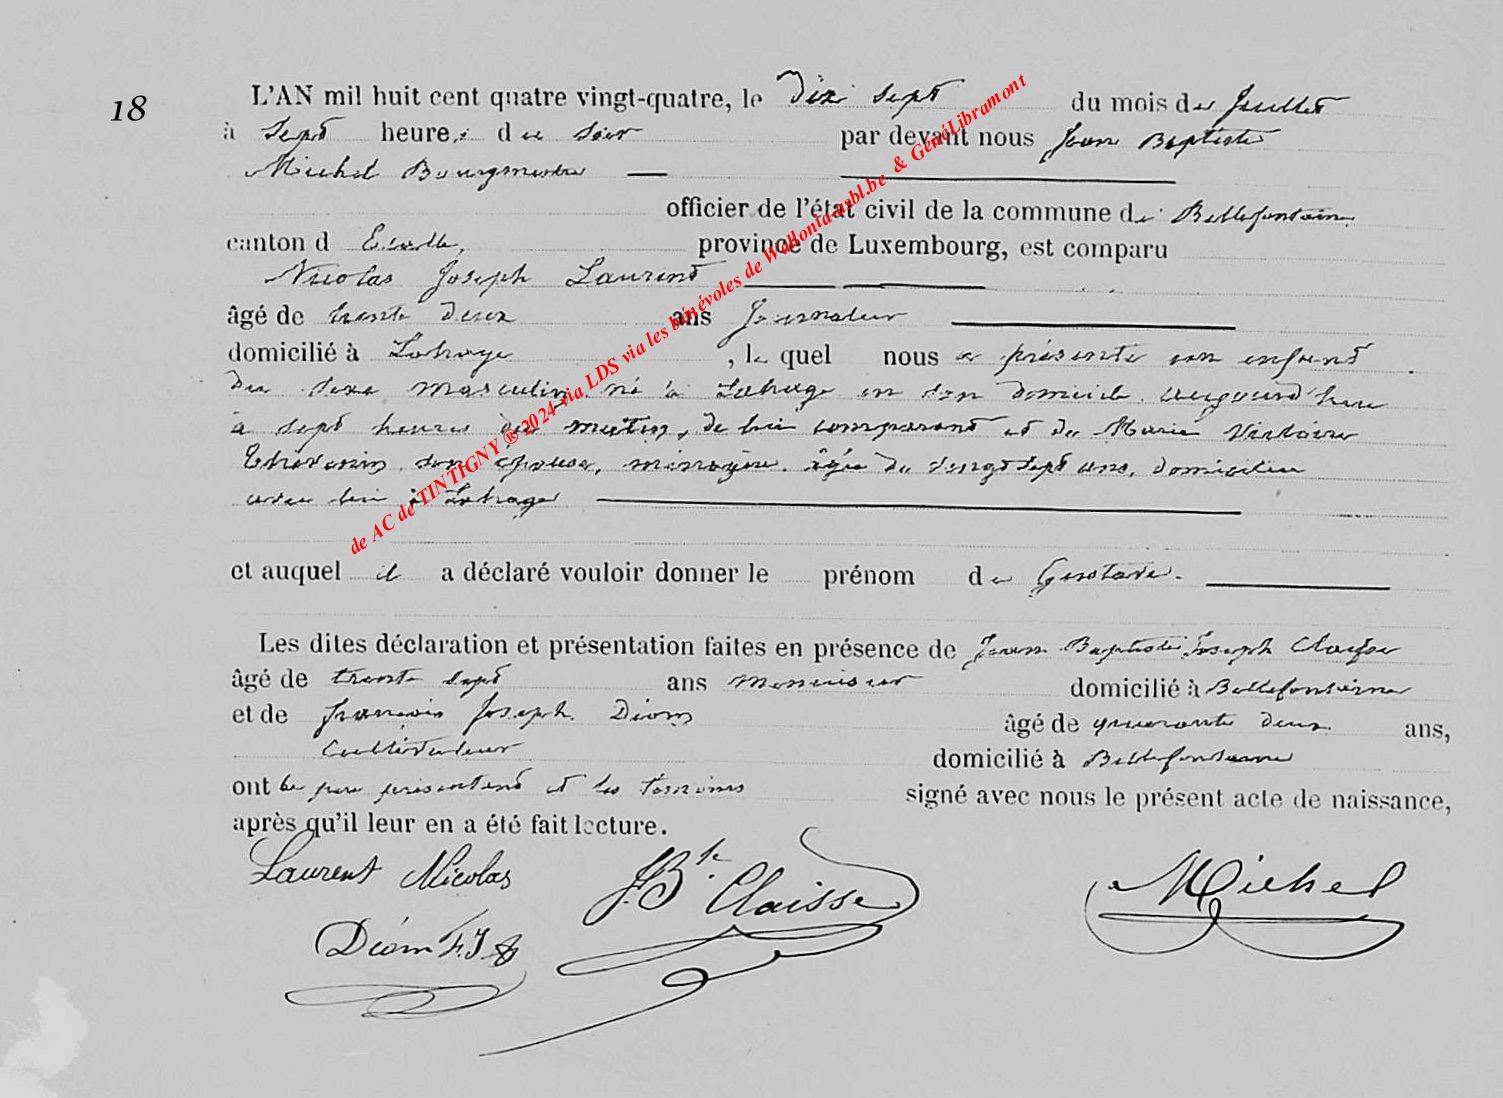 18
L'AN mil huit cent quatre vingt-quatre, le Dix sept du mois de Juillet
à Sept heures du soir par devant nous Jean Baptiste
Michel Bourgmestre
officier de l'état civil de la commune de Bellefontaine
canton d'Etalle, province de Luxembourg, est comparu
Nicolas Joseph Laurent
âgé de trente deux ans Journalier
domicilié à Lahage, lequel nous a présenté un enfant
du sexe masculin, né à Lahage en son domicile aujourd'hui
à sept heures du matin, de lui comparant et de Marie Victoire
son épouse, ménagère, âgée de vingt sept ans, domiciliée
avec lui à Lahage
et auquel il a déclaré vouloir donner le prénom de Gustave.
Les dites déclaration et présentation faites en présence de Jean Baptiste Joseph Claisse
âgé de trente sept ans menuisier domicilié à Bellefontaine
et de François Joseph Diom âgé de quarante deux ans,
Cultivateur domicilié à Bellefontaine
ont le père présentant et les témoins signé avec nous le présent acte de naissance,
après qu'il leur en a été fait lecture.
Laurent Nicolas
J. Bte. Claisse
Michel
Diom F. J.
de AC de TINTIGNY ® 2024 via LDS via les bénévoles de Wallonia asbl.be & GénéLibramont